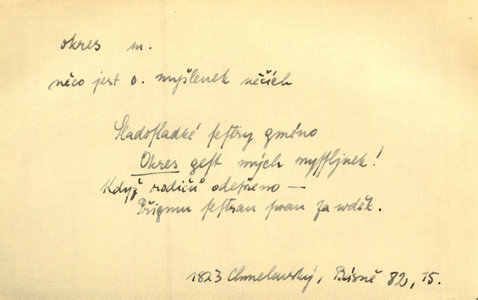 okres m.
něco jest o. myšlenek něčích
Sladosladké sestry gméno
Okres gest mých myssljnek!
Když rodičů odepřeno —
Přigmu sestrau swau za wděk.
1823 Chmelenský, Básně 82, 15.